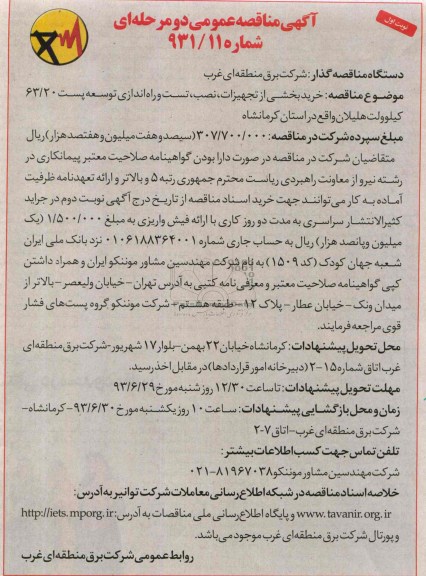 نوبت اول
آگهی مناقصه عمومی دو مرحله‌ای
شماره ۹۳۱/۱۱
دستگاه مناقصه گذار: شرکت برق منطقه‌ای غرب
موضوع مناقصه: خرید بخشی از تجهیزات، نصب، تست و راه اندازی توسعه پست ۶۳/۲۰
کیلوولت هلیلان واقع در استان کرمانشاه
مبلغ سپرده شرکت در مناقصه: ۳۰۷/۷۰۰/۰۰۰ (سیصد و هفت میلیون و هفتصد هزار) ریال
متقاضیان شرکت در مناقصه در صورت دارا بودن گواهینامه صلاحیت معتبر پیمانکاری در
رشته نیرو از معاونت راهبردی ریاست محترم جمهوری رتبه ۵ و بالاتر و ارائه تعهدنامه ظرفیت
آماده به کار می‌توانند جهت خرید اسناد مناقصه از تاریخ درج آگهی نوبت دوم در جراید
کثیرالانتشار سراسری به مدت دو روز کاری با ارائه فیش واریزی به مبلغ ۱/۵۰۰/۰۰۰ (یک
میلیون و پانصد هزار) ریال به حساب جاری شماره ۰۱۰۶۱۸۸۳۶۴۰۰۱ نزد بانک ملی ایران
شعبه جهان کودک (کد ۱۵۰۹) به نام شرکت مهندسین مشاور موننکو ایران و همراه داشتن
کپی گواهینامه صلاحیت معتبر و معرفی نامه کتبی به آدرس تهران - خیابان ولیعصر - بالاتر از
میدان ونک - خیابان عطار - پلاک ۱۲ - طبقه هشتم - شرکت موننکو گروه پست‌های فشار
قوی مراجعه فرمایند.
محل تحویل پیشنهادات: کرمانشاه خیابان ۲۲ بهمن - بلوار ۱۷ شهریور - شرکت برق منطقه‌ای
غرب اتاق شماره ۱۵-۲ (دبیرخانه امور قراردادها) در مقابل اخذ رسید.
مهلت تحویل پیشنهادات: تا ساعت ۱۲/۳۰ روز شنبه مورخ ۹۳/۶/۲۹
زمان و محل بازگشایی پیشنهادات: ساعت ۱۰ روز یکشنبه مورخ ۹۳/۶/۳۰ - کرمانشاه -
شرکت برق منطقه‌ای غرب - اتاق ۷-۲
تلفن تماس جهت کسب اطلاعات بیشتر:
شرکت مهندسین مشاور موننکو ۸۱۹۶۷۰۳۸-۰۲۱
خلاصه اسناد مناقصه در شبکه اطلاع رسانی معاملات شرکت توانیر به آدرس:
www.tavanir.org.ir و پایگاه اطلاع رسانی ملی مناقصات به آدرس: http://iets.mporg.ir
و پورتال شرکت برق منطقه‌ای غرب موجود می‌باشد.
روابط عمومی شرکت برق منطقه‌ای غرب